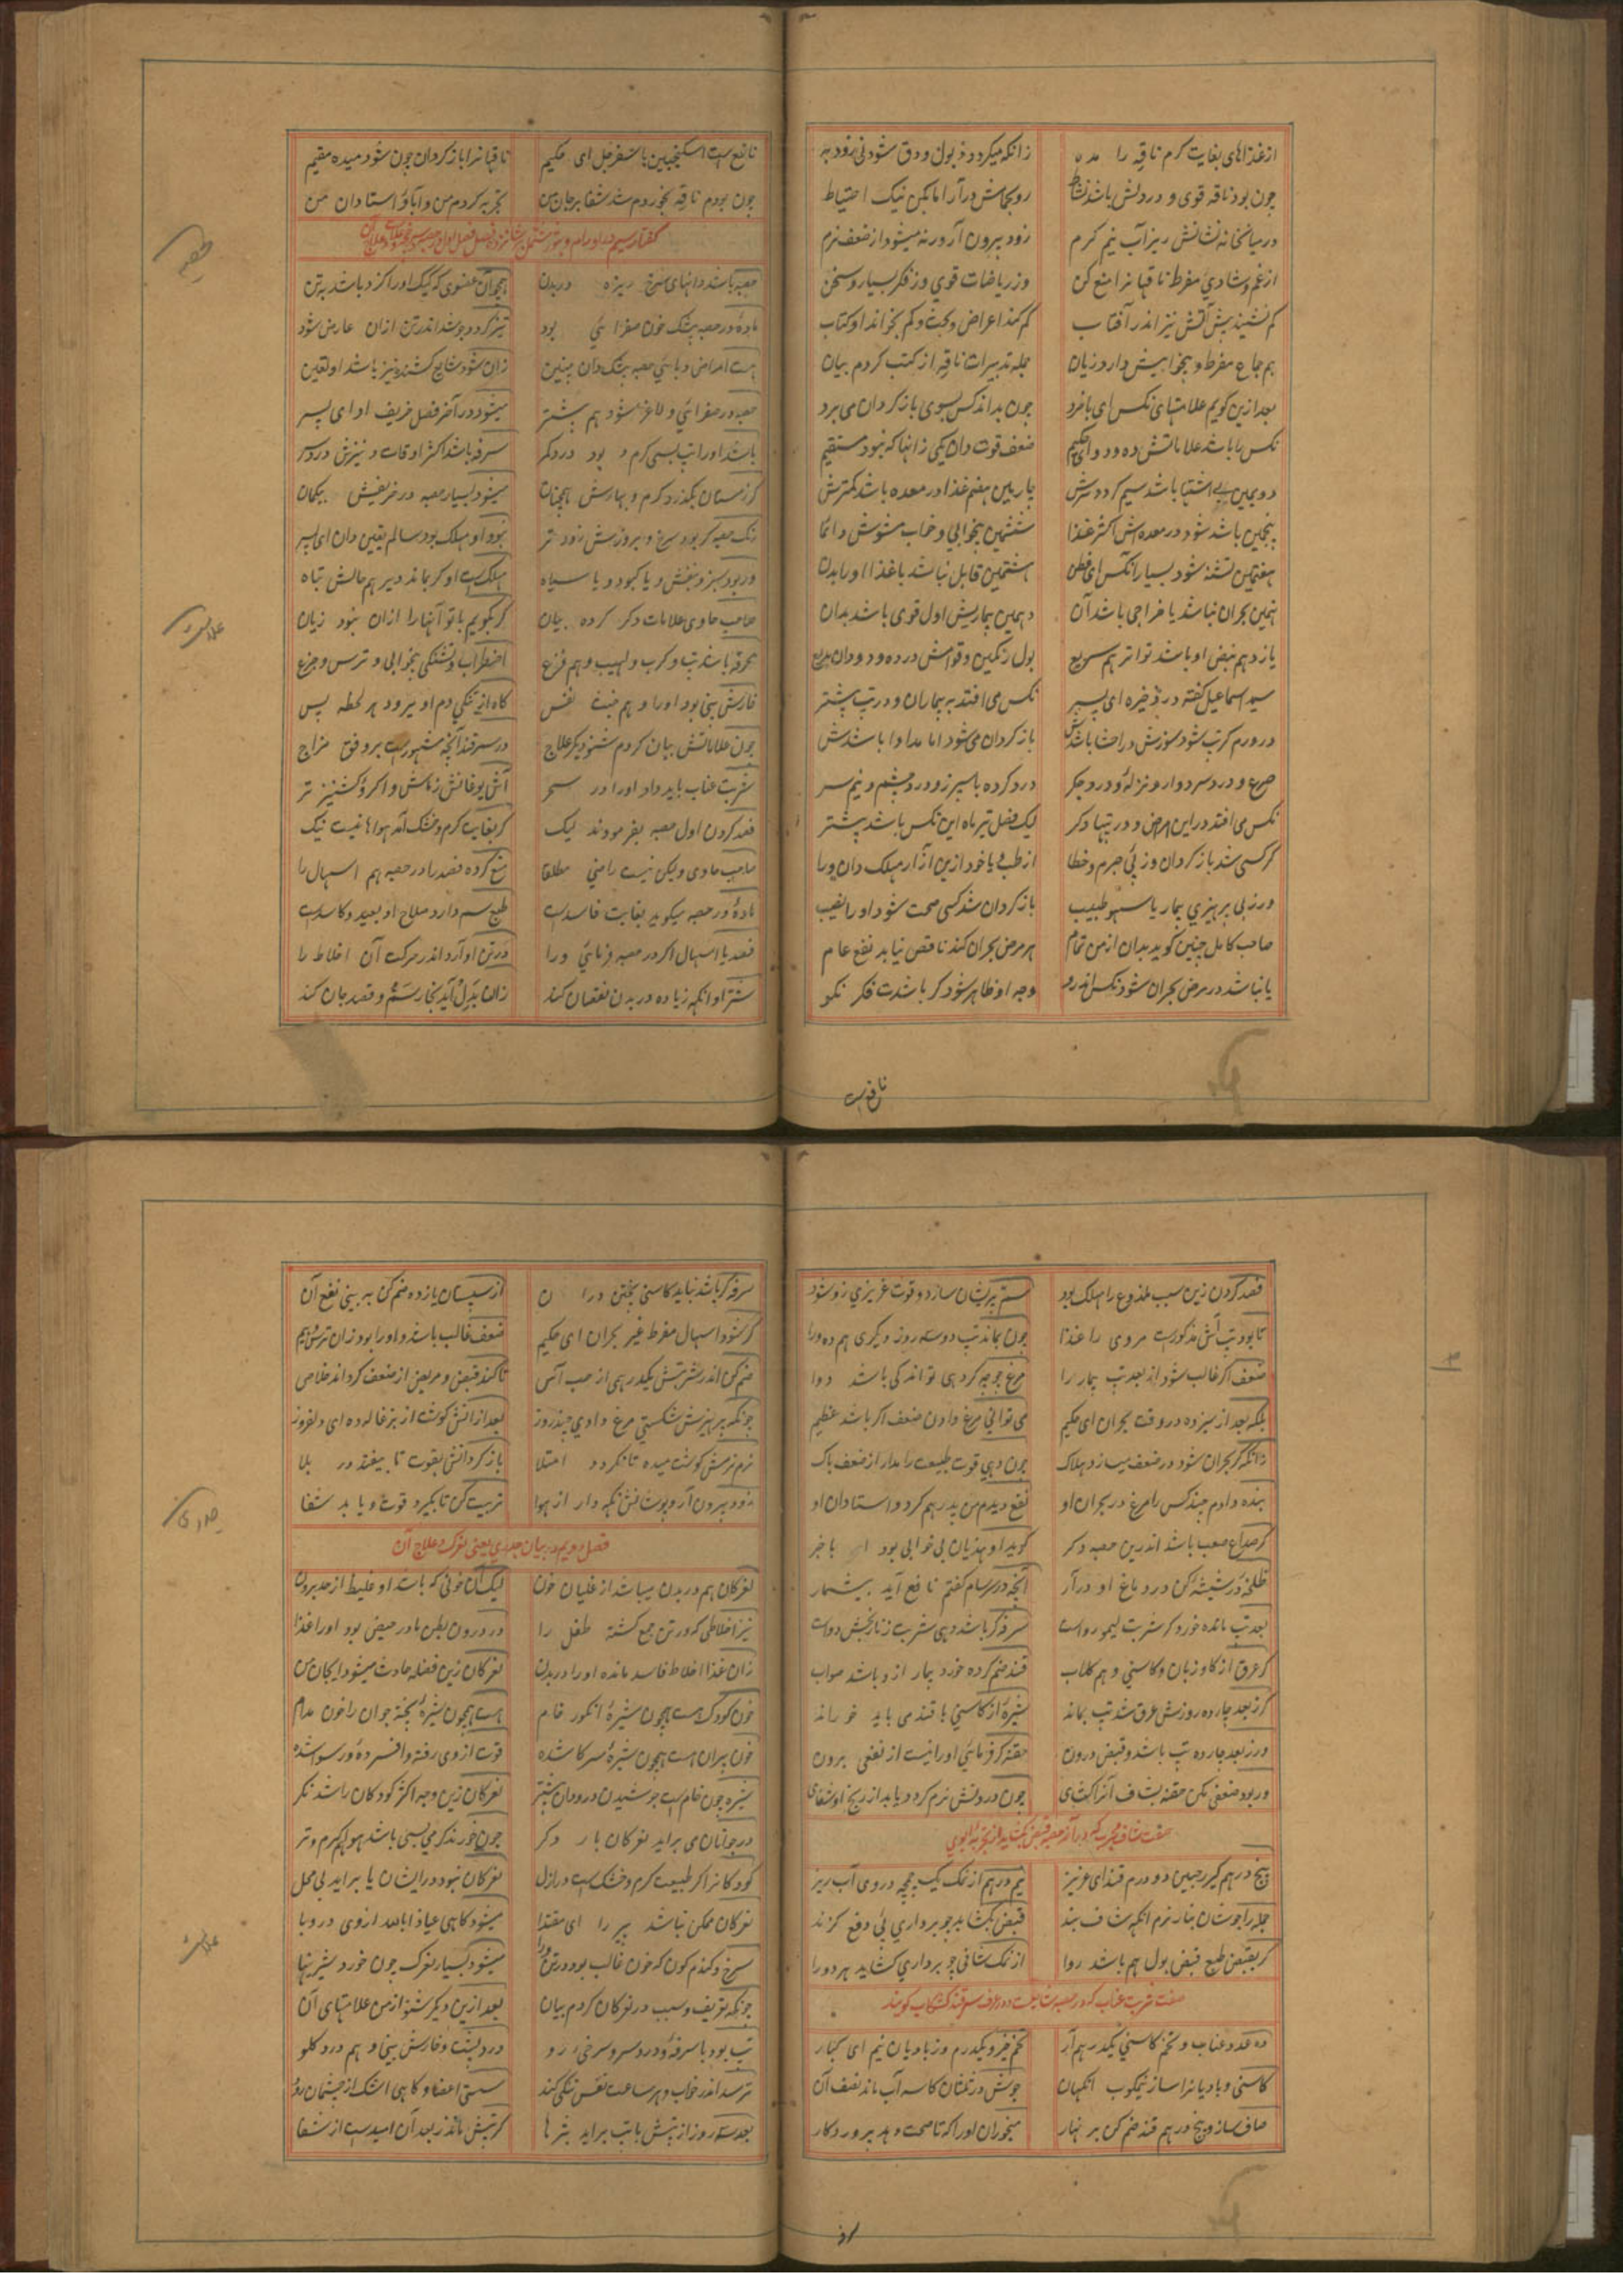 ازغذاهای بغایت کرم ناقه را مده زانکه میکردد ذبول و دق شود نی زود به
چون بود ناقه قوی و در دلش باشد نشاط رو بحمامش در آر اما بکن نیک احتیاط
در میانخانه نشانش ریز آب نیم کرم زود بیرون آر ورنه میشود از ضعف نرم
از غم و شادی مفرط ناقها نرا منع کن وز ریاضات قوی وز فکر بسیار و سخن
کم نشیند پیش آتش نیز اندر آفتاب کم کند اعراض و بحث و کم بخواند او کتاب
هم جماع مفرط و بیخوابیش دارد زیان جمله تدبیرات ناقه از کتب کردم بیان
بعد ازین کویم علامتهای نکس ای با خرد چون بداند کس بسوی باز کردان می برد
نکس را باشد علاماتش ده و دو ای حکیم ضعف قوت دان یکی زانها که نبود مستقیم
دویمین بی اشتها باشد سیم کردد ترش چارمین هضم غذا در معده باشد کمترش
پنجمین باشد شود در معده اش اکثر غذا ششمین بیخوابی و خواب مشوش دائما
هفتمین تشنه شود بسیار آنکس ای فطن هشتمین قابل نباشد با غذا او را بدن
نهمین بحران نباشد یا خراجی باشد آن دهمین بیماریش اول قوی باشد بدان
یازدهم نبض او باشد تواتر هم سریع بول رنکین و قوامش در ده و دو دان بدیع
سید اسماعیل کفته در ذخیره ای پسر نکس می افتد به بیماران و در تب پیشتر
در ورم کر تب شود سوزش در احشا باشدش باز کردان می شود اما مداوا باشدش
صرع و درد سر دوار و نزله و درد جکر درد کرده با سپرز و درد چشم و نیم سر
نکس می افتد در این امراض و در تبها دکر لیک فصل تیر ماه این نکس باشد پیشتر
کر کسی شد باز کردان وز پی جرم و خطا از طب یا خود ازین آزار مهلک دان ورا
ور ز بی پرهیزی بیمار یا سهو طبیب باز کردان شد کسی صحت شود او را نصیب
صاحب کامل چنین کوید بدان از من تمام هر مرض بحران کند ناقص نیابد نفع عام
یا نباشد در مرض بحران شود نکس اندرو وجه او ظاهر شود کر باشدت فکر نکو
نافع است
نافع است اسکنجبین با سفرجل ای حکیم ناقها نرا باز کردان چون شود میده مقیم
چون بودم ناقه بخوردم شد شفا بر جان من تجربه کردم من و آبا و استادان من
حصبه
حصبه باشد دانهای سرخ ریزه در بدن همچو آن عضوی که کیک او را کزد باشد به تن
مادهٔ در حصبه بیشک خون صفرائی بود تیز کردد جوشد اندر تن ازان عارض شود
هست امراض وبائی حصبه بیشک دان چنین زان شود شایع کشنده نیز باشد او یقین
حصبه در صفرائی و لاغر شود هم پیشتر میشود در آخر فصل خریف او ای پسر
باشد او را تب بسی کرم و بود درد کمر سرفه باشد اکثر اوقات و نیزش درد سر
کر زمستان بکذرد کرم و بهارش همچنان میشود بسیار حصبه در خریفش بیکمان
رنک حصبه کر بود سرخ و بروزش زود تر نبود او مهلک بود سالم یقین دان ای پسر
ور بود سبز و بنفش و یا کبود و یا سیاه مهلک است او کر بماند دیر هم حالش تباه
علامت
صاحب حاوی علامات دکر کرده بیان کر بکویم با تو آنها را ازان نبود زیان
محرقه باشد تب و کرب و لهیب و هم فزع اضطراب و تشنکی بیخوابی و ترس و جزع
خارش بینی بود او را و هم خبث نفس کاه از تنکی دم او میرود هر لحظه پس
چون علاماتش بیان کردم شنو دیکر علاج در سمرقند آنچه مشهور است بر وفق مزاج
شربت عناب باید داد او را در سحر آش یوغانش ز ماش و اکرو کشنیز تر
فصد کردن اول حصبه بفرمودند لیک کر بغایت کرم و خشک آمد هوا ها نیست نیک
صاحب حاوی ولیکن نیست راضی مطلقا منع کرده فصد را در حصبه هم اسهال را
مادهٔ در حصبه میکوید بغایت فاسد است طبع سم دارد صلاح او بعید و کاسد است
فصد یا اسهال اکر در حصبه فرمائی ورا در تن او آرد اندر حرکت آن اخلاط را
سم تر او آنکه زیاده در بدن نقصان کند زان بدل آید بخار سم و قصد جان کند
فصد کردن زین سبب ملذوع را مهلک بود سم پریشان سازد و قوت غریزی زو شود
تا بود تب آش مذکور است مروی را غذا چون بماند تب دو سه روز دیکری هم ده ورا
ضعف اکر غالب شود از بعد تب بیمار را مرغ جوجه کر دهی تو اندکی باشد دوا
بلکه بعد از سیزده در وقت بحران ای حکیم می توانی مرغ دادن ضعف اکر باشد عظیم
زانکه کر بحران شود در ضعف میسازد هلاک چون دهی قوت طبیعت را مدار از ضعف باک
بنده دادم چند کس را مرغ در بحران او نفع دیدم من پدر هم کرد و استادان او
کر صداع صعب باشد اندرین حصبه دکر کوید او هذیان بی خوابی بود با خبر
لخلخه در شیشه کن در دماغ او در آر آنچه در سرسام کفتم نافع آید بیشمار
بعد تب مانده خورد کر شربت لیمو رواست سرفه کر باشد دهی شربت ز نار بخش دواست
کر عرق از کاو زبان و کاسنی و هم کلاب قند ضم کرده خورد بیمار از او باشد صواب
کر ز بعد چارده روزش عرق شد تب بماند شیرهٔ از کاسنی با قند می باید خوراند
ور ز بعد چارده تب باشد و قبض درون حقنه کر فرمائی او را نیست از نفعی برون
ور بود ضعفی مکن حقنه بشاف آنرا کشای چون درونش نرم کردد یابد از رنج او شفای
پنج درهم کیر ترنجبین دو درم قند ای عزیز نیم درهم از نمک یک چمچه در وی آب ریز
جمله را جوشان بنار نرم آنکه شاف بند قبض بکشاید چو برداری پی دفع کزند
کر بقبض طبع قبض بول هم باشد روا از نمک شافی چو برداری کشاید هر دو را
ده عدد عناب و تخم کاسنی یکدرهم آر تخم خرفه یکدرم وز بادیان نیم ای کبار
کاسنی و بادیانرا ساز نیمکوب آنکهان جوش در شان کاسه آب ماند نصف آن
صاف ساز و پنج درهم قند ضم کن بر نهار میخوران او را که تا صحت دهد پروردکار
سرفه
سرفه کر باشد نباید کاسنی پختن در ان از سپستان یازده ضم کن ببینی نفع آن
کر شود اسهال مفرط غیر بحران ای حکیم ضعف غالب باشد و او را بود زان ترس و بیم
ضم کن اندر شربتش یکدرهمی از حب آس تا کند قبض و مریض از ضعف کرداند خلاص
چونکه پرهیزش شکستی مرغ دادی چند روز بعد ازانش کوشت از بزغاله ده ای دلفروز
نرم نرمش کوشت میده تا نکردد امتلا باز کردانش بقوت تا نیفتد در بلا
زود بیرون آر و پوشانش نکه دار از هوا تربیت کن تا بکیرد قوت و یابد شفا
جدری
فصل دویم در بیان جدری یعنی نغزک و علاج آن
نغزکان هم در بدن میباشد از غلیان خون لیک آن خونی که باشد او غلیظ از حد برون
نیز اخلاطی که در تن جمع کشته طفل را در درون بطن مادر حیض بود او را غذا
زان غذا اخلاط فاسد مانده او را در بدن نغزکان زین فضله حادث میشود ایجان من
خون کودک هست همچون شیرهٔ انکور خام هست همچون شیرهٔ پخته جوان را خون مدام
خون پیران هست همچون شیرهٔ سرکا شده قوت از وی رفته و افسرده و رسوا شده
شیره چون خام است جوشیدن درو دان بیشتر نغزکان زین وجه اکثر کودکان را شد نکر
در جوانان می براید نغزکان بار دکر چون خورند کرمی بسی باشد هوا هم کرم و تر
کودکانرا کر طبیعت کرم و خشک است در ازل نغزکان نبود در ایشان یا براید بی محل
نغزکان ممکن نباشد پیر را ای مقتدا میشود کاهی عیاذا بالله از وی در وبا
سرخ و کندم کون که خون غالب بود در تن ورا میشود بسیار نغزک چون خورد شیرینها
علامت
چونکه تعریف و سبب در نغزکان کردم بیان بعد ازین دیکر شنو از من علامتهای آن
تب بود با سرفه و درد سر و سرخی رو درد پشت و خارش بینی و هم درد کلو
ترسد اندر خواب و هر ساعت نفس تنکی کند سستی اعضا و کاهی اشک از چشمان رود
بعد سه روز از تپش یا تب براید بثرها کر تپش ماند ز بعد آن امید است از شفا